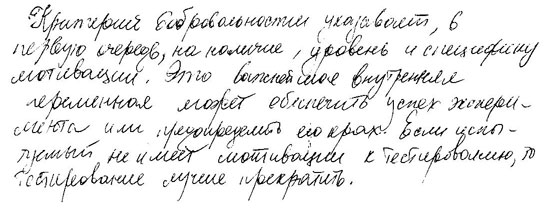 Критерий добровольности указывает, в
первую очередь, на наличие, уровень и специфику
мотивации. Это важнейшая внутренняя
переменная может обеспечить успех экспери-
мента или предопределить его крах. Если испы-
туемый не имеет мотивации к тестированию, то
тестирование лучше прекратить.